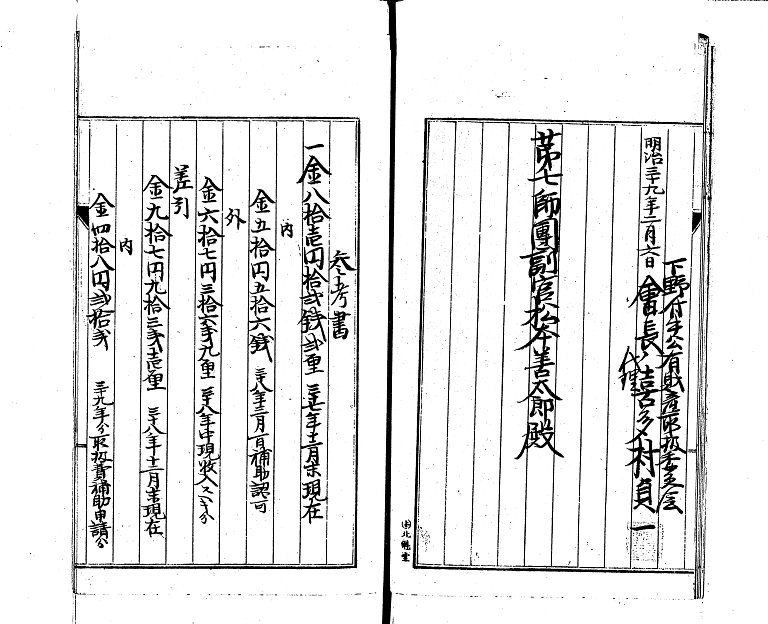 明治三十九年二月六日
下野付生公有財産取扱委員会
會長
代理
喜多村貞一
第七師團副官松本善太郎殿
北魁堂
参考書
一金八拾壱円拾弐銭弐厘 三十七年十二月末現在
内
金五拾円五拾六銭 三十八年三月一日補助認可
外
金六拾七円三拾六銭九厘 三十八年中現收入ス分
差引
金九拾七円九拾三銭壱厘 三十八年十二月末現在
内
金四拾八円弐拾弐 三十九年分取扱費補助申請分